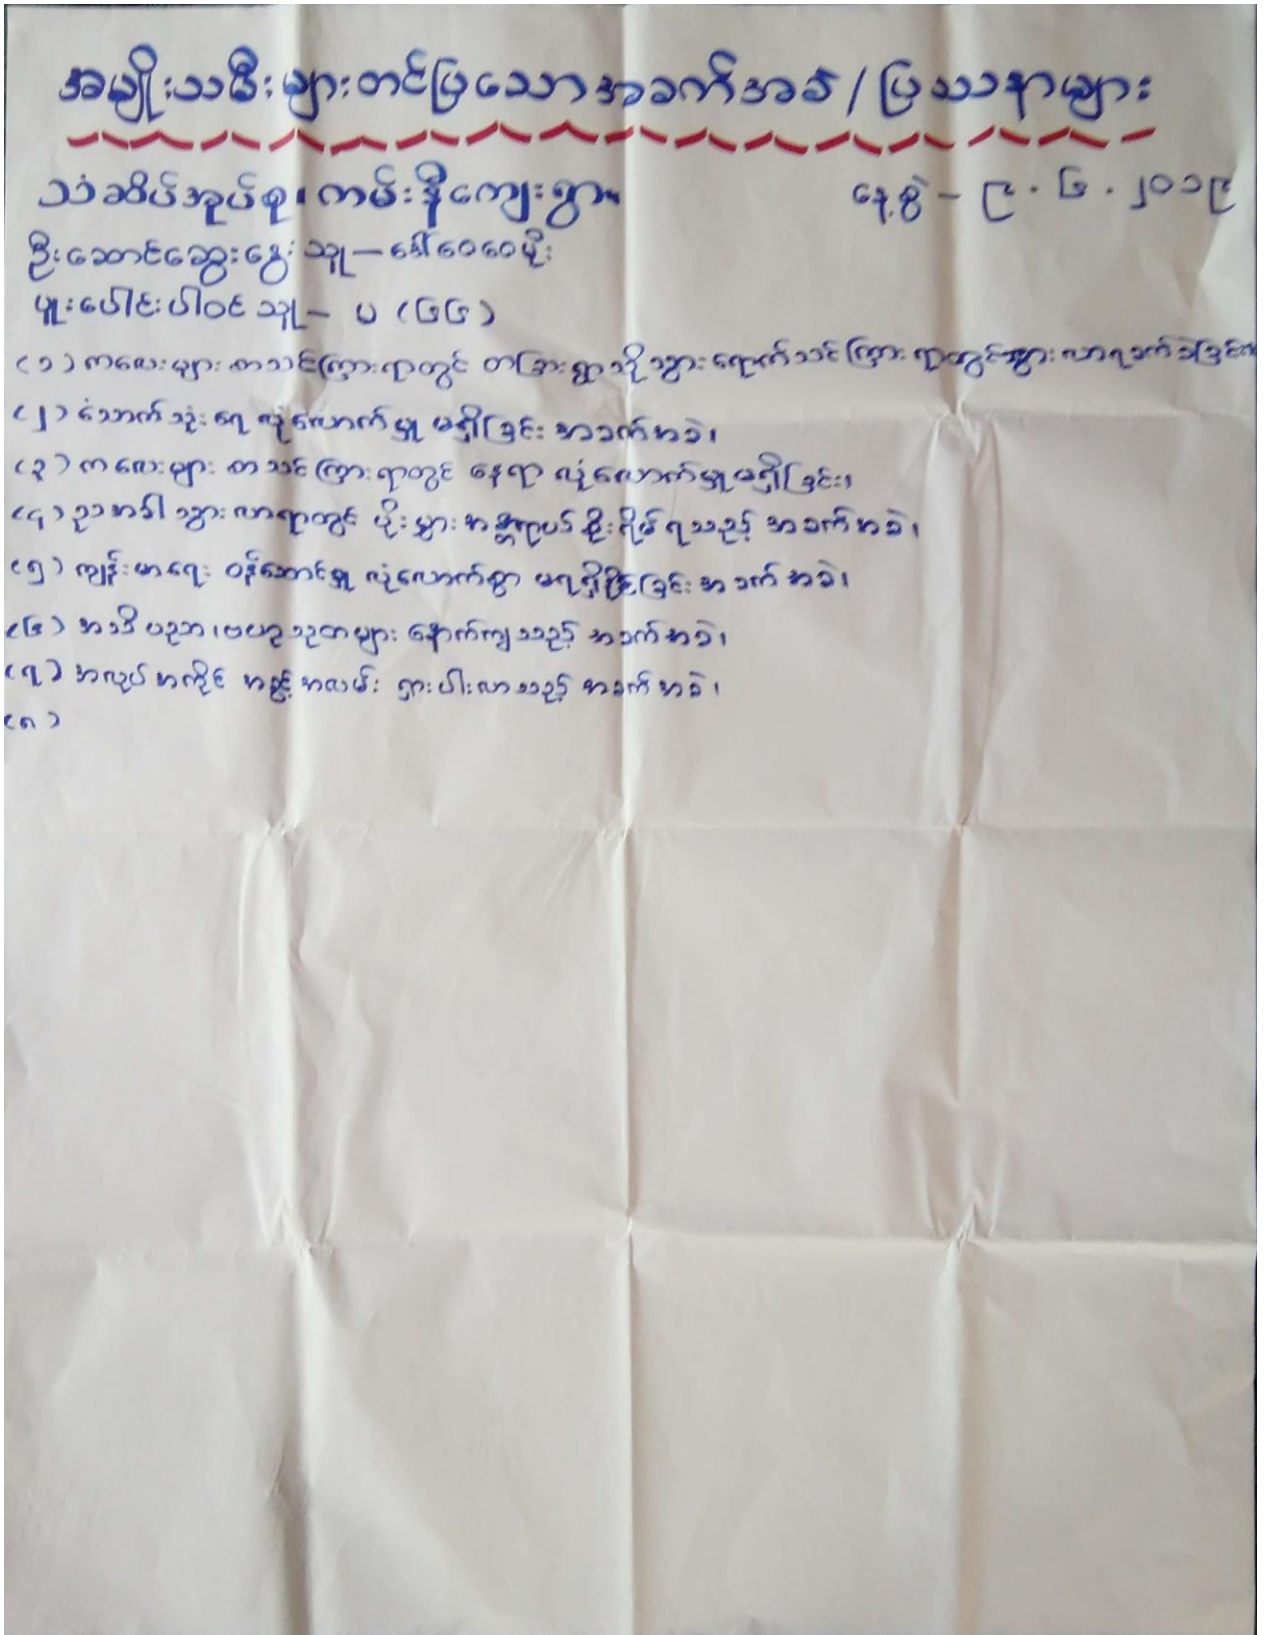 အမျိုးသမီးများတင်ပြသောအခက်အခဲ / ပြဿနာများ
သံဆိပ်အုပ်စု၊ ကမ်းနီကျေးရွာ။ နေ့စွဲ – ၉.၆.၂၀၁၉
ဦးဆောင်ဆွေးနွေးသူ – ဒေါ်ဝေဝေဖိုး
ပူးပေါင်းပါဝင်သူ – မ (၆၆)
(၁) ကလေးများ စာသင်ကြားရာတွင် တခြားရွာသို့သွားရောက်သင်ကြားရာတွင်သွားလာရခက်ခဲခြင်း
(၂) သောက်သုံးရေ လုံလောက်မှု မရှိခြင်း အခက်အခဲ၊
(၃) ကလေးများ စာသင်ကြားရာတွင် နေရာ လုံလောက်မှုမရှိခြင်း၊
(၄) ဥအတဝါ သွားလာရာတွင် မိုးမွှား အန္တရာယ် စိုးရိမ်ရသည့် အခက်အခဲ၊
(၅) ကျန်းမာရေး ဝန်ဆောင်မှု လုံလောက်စွာ မရရှိနိုင်ခြင်း အခက်အခဲ၊
(၆) အသိပညာ၊ဗဟုသုတများ နောက်ကျသည့် အခက်အခဲ၊
(၇) အလုပ်အကိုင် အခွင့်အလမ်း ရှားပါးလာသည့် အခက်အခဲ၊
(၈)